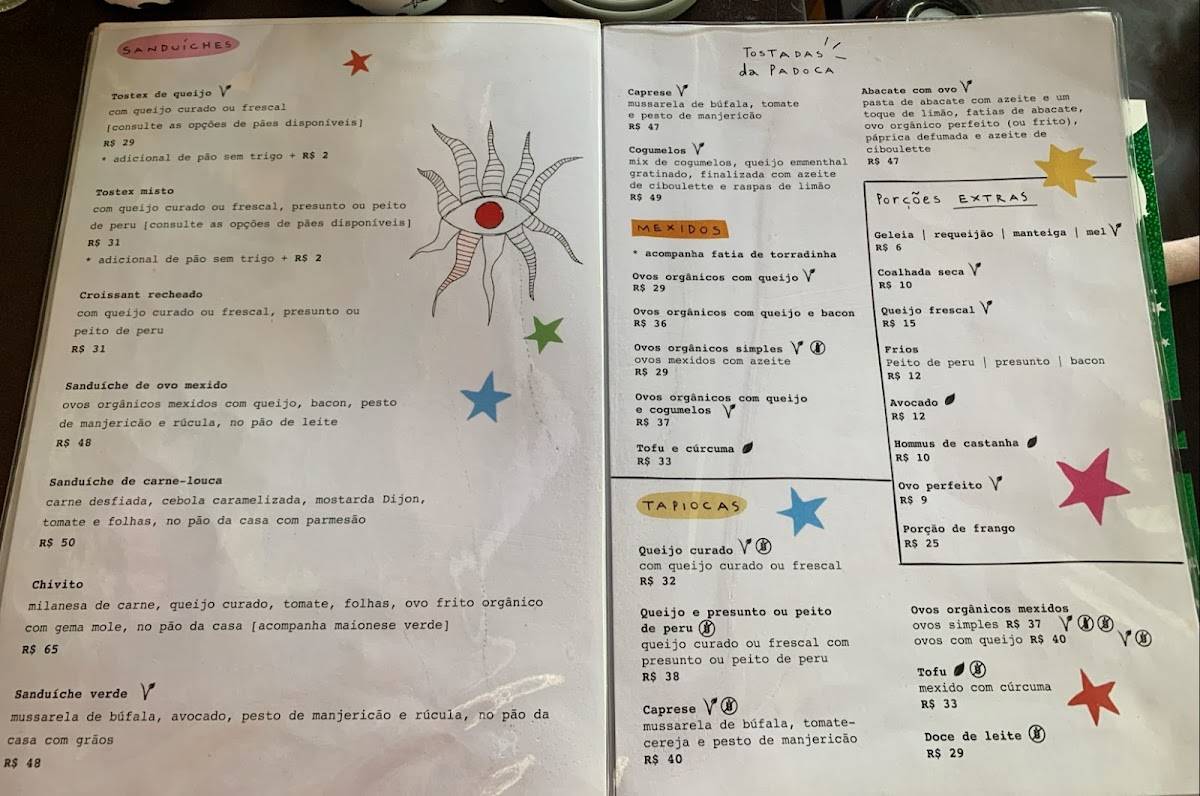 SANDUÍCHES
Tostex de queijo
com queijo curado ou frescal
[consulte as opções de pães disponíveis]
R$ 29
* adicional de pão sem trigo + R$ 2
Tostex misto
com queijo curado ou frescal, presunto ou peito
de peru [consulte as opções de pães disponíveis]
R$ 31
* adicional de pão sem trigo + R$ 2
Croissant recheado
com queijo curado ou frescal, presunto ou
peito de peru
R$ 31
Sanduíche de ovo mexido
ovos orgânicos mexidos com queijo, bacon, pesto
de manjericão e rúcula, no pão de leite
R$ 48
Sanduíche de carne-louca
carne desfiada, cebola caramelizada, mostarda Dijon,
tomate e folhas, no pão da casa com parmesão
R$ 50
Chivito
milanesa de carne, queijo curado, tomate, folhas, ovo frito orgânico
com gema mole, no pão da casa [acompanha maionese verde]
R$ 65
Sanduíche verde
mussarela de búfala, avocado, pesto de manjericão e rúcula, no pão da
casa com grãos
R$ 48
TOSTADAS
da PADOCA
Caprese
mussarela de búfala, tomate
e pesto de manjericão
R$ 47
Cogumelos
mix de cogumelos, queijo emmenthal
gratinado, finalizada com azeite
de ciboulette e raspas de limão
R$ 49
Abacate com ovo
pasta de abacate com azeite e um
toque de limão, fatias de abacate,
ovo orgânico perfeito (ou frito),
páprica defumada e azeite de
ciboulette
R$ 47
MEXIDOS
* acompanha fatia de torradinha
Ovos orgânicos com queijo
R$ 29
Ovos orgânicos com queijo e bacon
R$ 36
Ovos orgânicos simples
ovos mexidos com azeite
R$ 29
Ovos orgânicos com queijo
e cogumelos
R$ 37
Tofu e cúrcuma
R$ 33
Porções EXTRAS
Geleia | requeijão | manteiga | mel
R$ 6
Coalhada seca
R$ 10
Queijo frescal
R$ 15
Frios
Peito de peru | presunto | bacon
R$ 12
Avocado
R$ 12
Hommus de castanha
R$ 10
Ovo perfeito
R$ 9
Porção de frango
R$ 25
TAPIOCAS
Queijo curado
com queijo curado ou frescal
R$ 32
Queijo e presunto ou peito
de peru
queijo curado ou frescal com
presunto ou peito de peru
R$ 38
Caprese
mussarela de búfala, tomate-
cereja e pesto de manjericão
R$ 40
Ovos orgânicos mexidos
ovos simples R$ 37
ovos com queijo R$ 40
Tofu
mexido com cúrcuma
R$ 33
Doce de leite
R$ 29